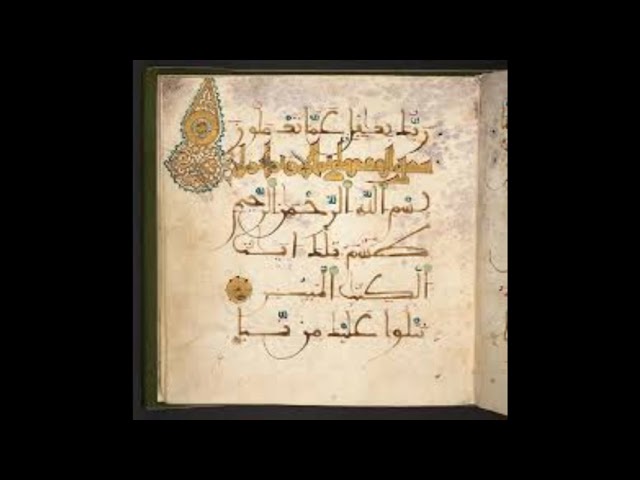 رَبُّكَ بِغَٰفِلٍ عَمَّا تَعْمَلُونَ
بِسْمِ ٱللَّهِ ٱلرَّحْمَٰنِ ٱلرَّحِيمِ
طسٓمٓ تِلْكَ ءَايَٰتُ
ٱلْكِتَٰبِ ٱلْمُبِينِ
نَتْلُوا عَلَيْكَ مِن نَّبَإِ